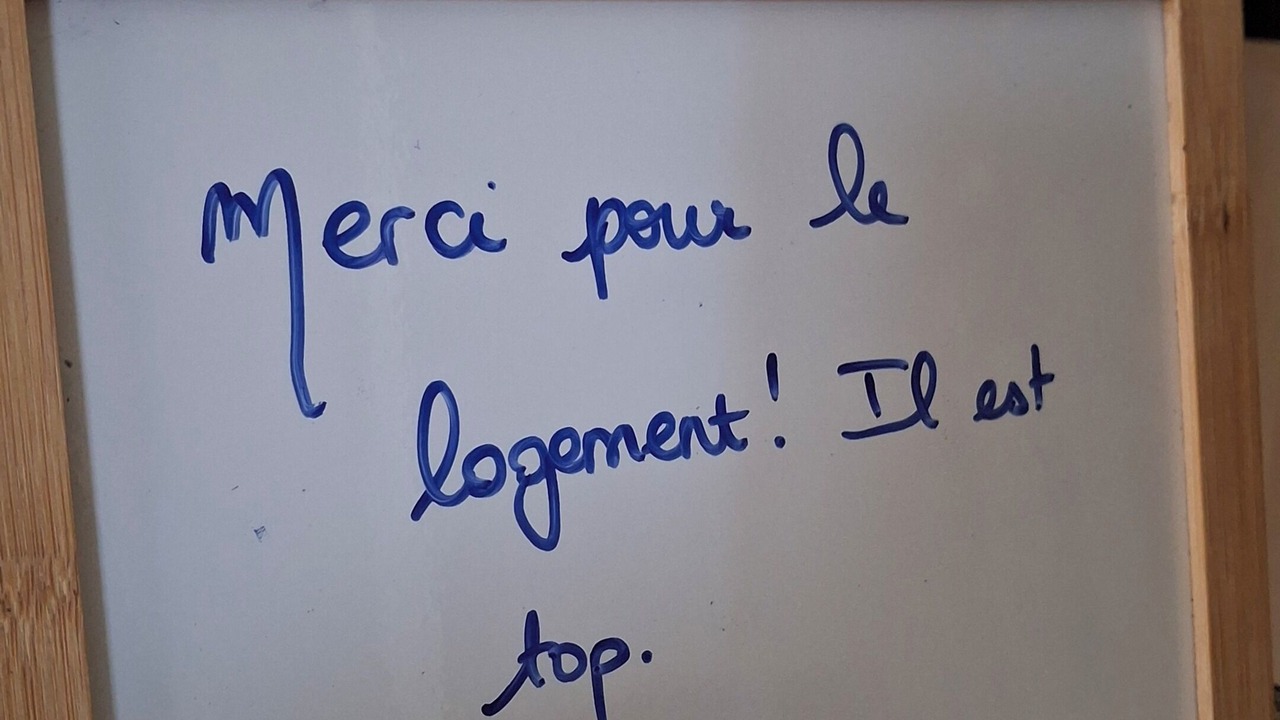 Merci pour le
logement! Il est
top.